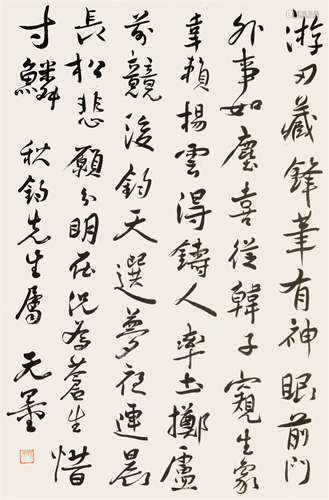 游刃藏鋒筆有神眼前門
外事如塵喜從韓子窺生象
幸賴楊雲得鑄人率土擲盧
前競後鈞天選夢夜連晨
長松悲願分明在況為蒼生惜
寸鱗 秋鈞先生屬 无量